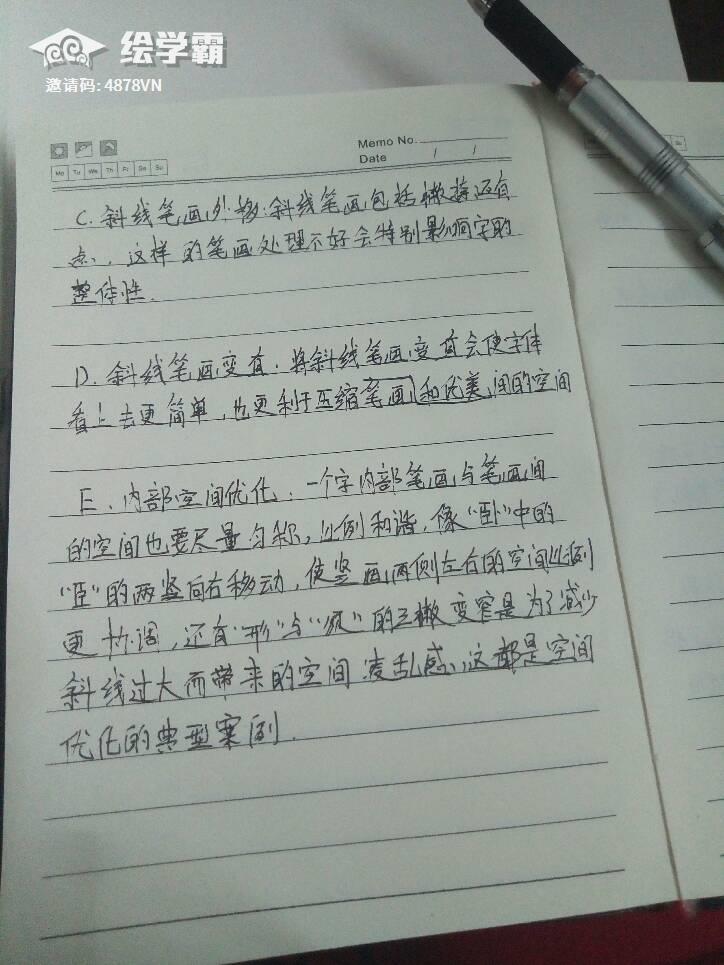 绘学霸
邀请码: 4878VN
Memo No.
Date / /
Mo Tu We Th Fr Sa Su
C. 斜线笔画外移: 斜线笔画包括撇捺还有
点、这样的笔画处理不好会特别影响字的
整体性.
D. 斜线笔画变直: 将斜线笔画变直会使字体
看上去更简单, 也更利于压缩笔画和优美间的空间
E. 内部空间优化: 一个字内部笔画与笔画间
的空间也要尽量匀称, 比例和谐, 像“卧”中的
“臣”的两竖向右移动, 使竖画两侧左右的空间比例
更协调, 还有“形”与“须”的三撇变窄是为了减少
斜线过大而带来的空间凌乱感, 这都是空间
优化的典型案例.
Su